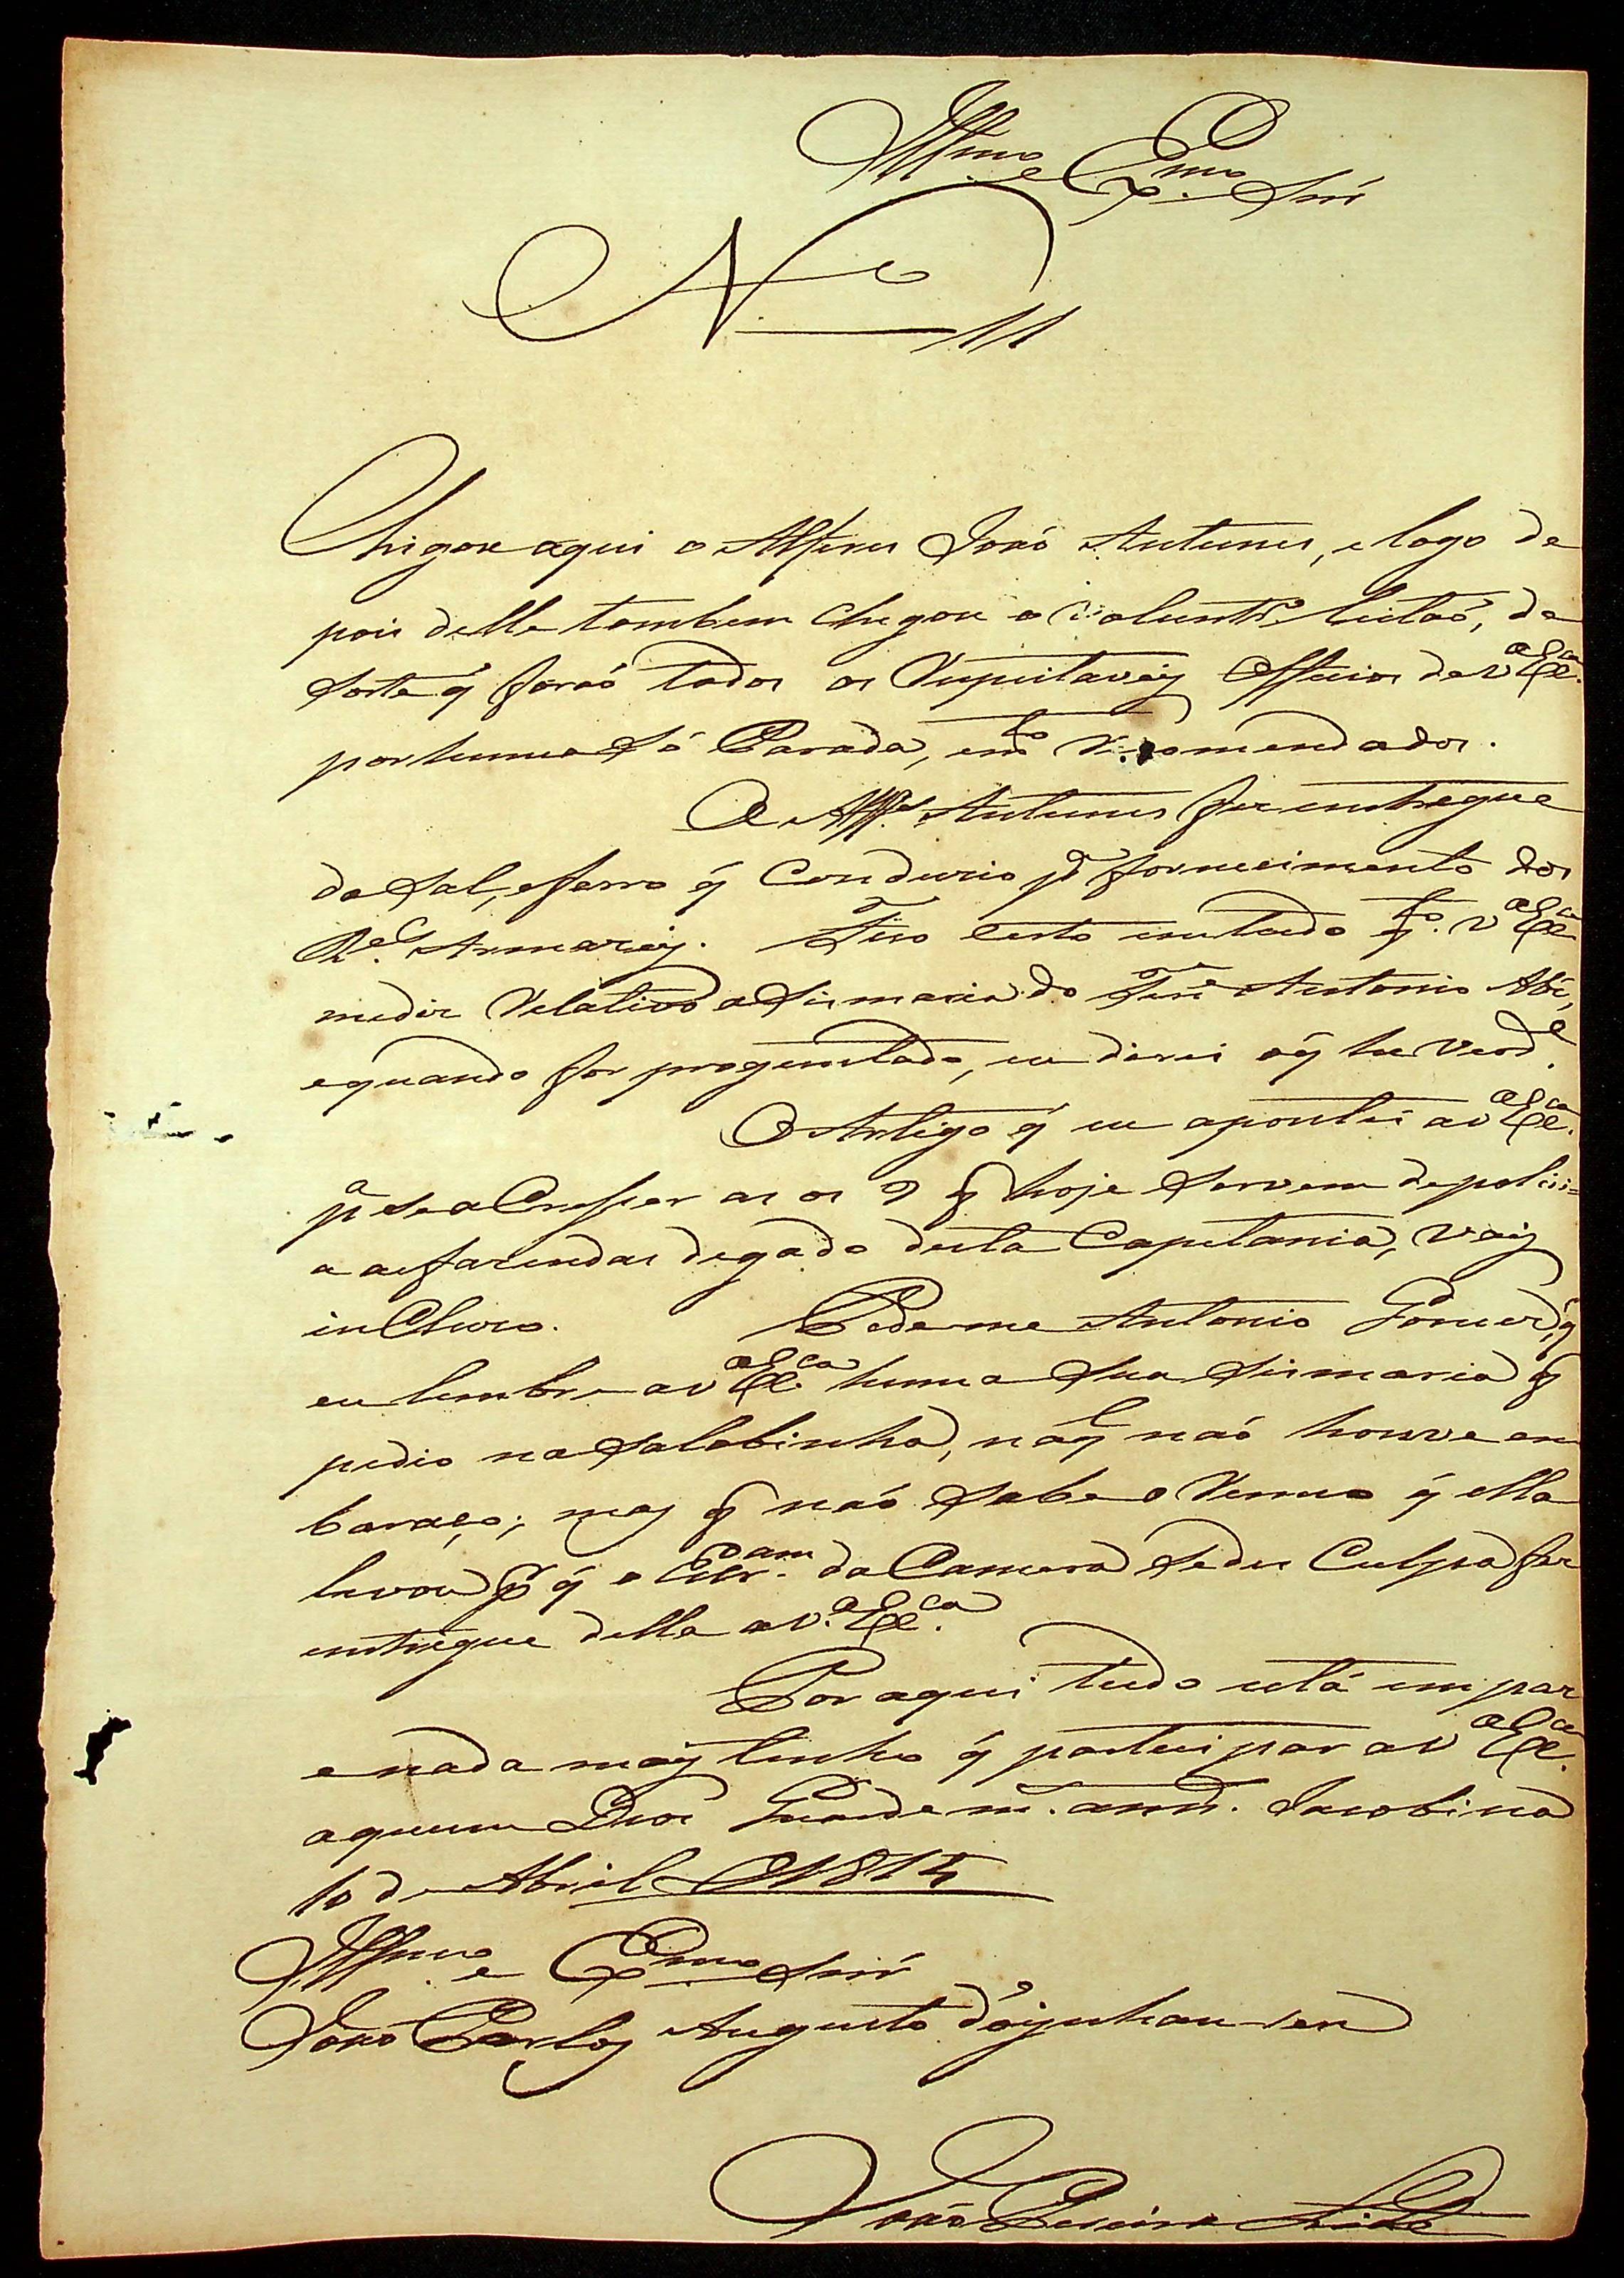 Illmo. e Exmo. Snr.
No. 11
Chigou aqui o Alferes Joaó Antunes, e logo de
pois delle tambem Chegou o Voluntro. Leitaó, de
sorte q' foraó todos os Respeitaveij Officios de V. Exca.
por huma só Parada, em
O Alfes. Antunes fes entregue
do Sal, e ferro q' Condusio pa. fornecimento dos
Rs. Armazeij. Fico Certo em tudo qto. V. Exca.
me dis Relativo a Sismaria do Tene. Antonio
e quando for proguntado, eu direi o q' he Verde.
O Artigo q' eu apontei a V. Exca.
pa. se aCresser as os q' hoje servem de polici=
a as fazendas de gado desta Capitania, vaij
incluzo. Pede me Antonio Gomes, q'
eu lembre a V. Exca. huma sua Sismaria q'
pedio na Salobinha, na ql. naó houve en
baraço; maj q' naó sabe o Rumo q' ella
levou, q' o Escram. da Camera de seu Culpa fes
entregue della a V. Exca.
Por aqui tudo está em paz
e nada maij tenho q' participar a V. Exca.
a quem Deos Guarde ms. anns. Jacobina
10 de Abril D 1815
Illmo. e Exmo. Snr.
Joaó Carloj Augusto d'Oÿnhausen
Joaó Pereira Leite